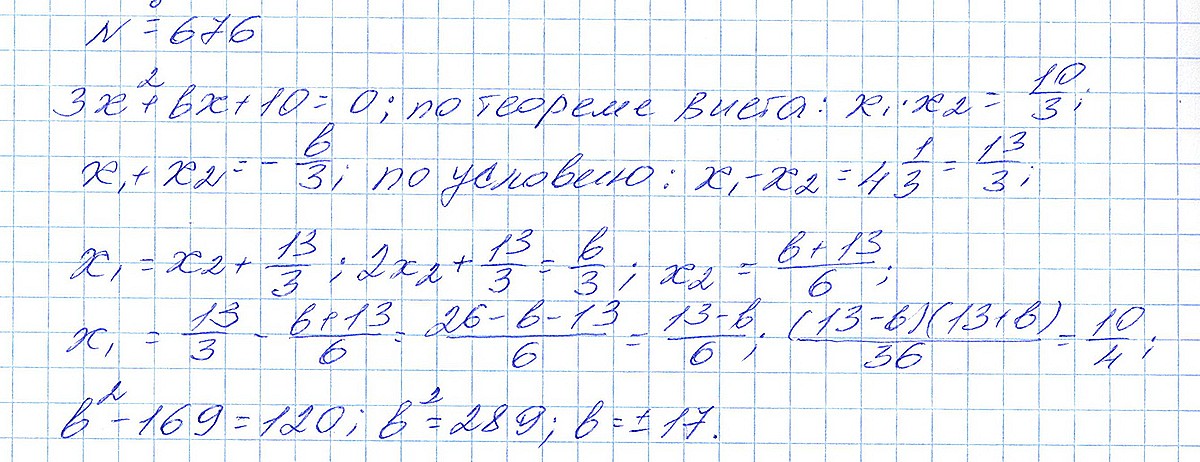 № = 676
3x² + bx + 10 = 0; по теореме виета: x₁ · x₂ = 10/3;
x₁ + x₂ = - b/3; по условию: x₁ - x₂ = 4 1/3 = 13/3;
x₁ = x₂ + 13/3; 2x₂ + 13/3 = b/3; x₂ = (b + 13)/6;
x₁ = 13/3 - (b + 13)/6 = (26 - b - 13)/6 = (13 - b)/6; ((13 - b)(13 + b))/36 = 10/4;
b² - 169 = 120; b² = 289; b = ± 17.